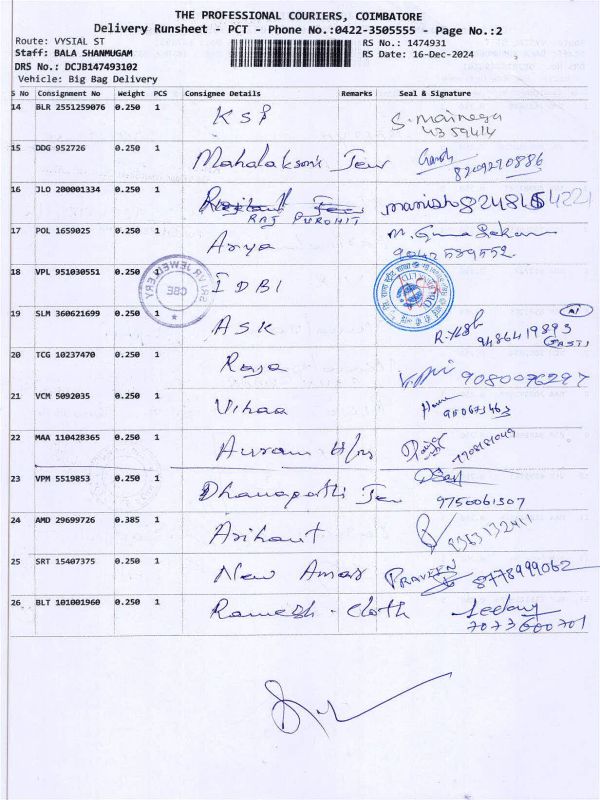 THE PROFESSIONAL COURIERS, COIMBATORE
Delivery Runsheet - PCT - Phone No.:0422-3505555 - Page No.:2
Route: VYSIAL ST
RS No.: 1474931
Staff: BALA SHANMUGAM
RS Date: 16-Dec-2024
DRS No.: DCJB147493102
Vehicle: Big Bag Delivery
S No Consignment No Weight PCS Consignee Details Remarks Seal & Signature
14 BLR 2551259076 0.250 1 KSP
4359414
15 DDG 952726 0.250 1 Jew
8209270886
16 JLO 200001334 0.250 1 manish
RAJ PUROHIT
17 POL 1659025 0.250 1 Arya
18 VPL 951030551 0.250 1 IDBI
CBE
19 SLM 360621699 0.250 1 ASK
9486419893
20 TCG 10237470 0.250 1 Raja 9080076297
21 VCM 5092035 0.250 1 Vihaa
22 MAA 110428365 0.250 1
23 VPM 5519853 0.250 1
9750061307
24 AMD 29699726 0.385 1 Arihant
25 SRT 15407375 0.250 1 New Amar PRAVEEN 8778999062
26 BLT 101001960 0.250 1 Ramesh - Cloth
7073600701